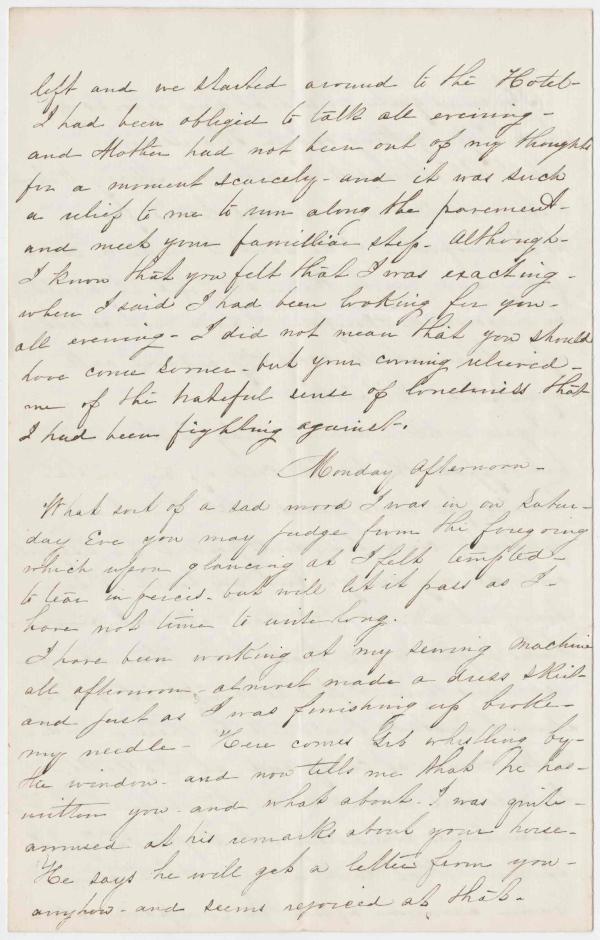 left and we started around to the Hotel-
I had been obliged to talk all evening -
and Mother had not been out of my thoughts
for a moment scarcely - and it was such
a relief to me to run along the pavement -
and meet your familliar step. Although -
I know that you felt that I was exacting -
when I said I had been looking for you -
all evening - I did not mean that you should
have come sooner - but your coming relieved -
me of the hateful sense of loneliness that
I had been fighting against.
Monday afternoon -
What sort of a sad mood I was in on Satur-
day Eve you may judge from the foregoing
which upon glancing at I felt tempted -
to tear in peices - but will let it pass as I -
have not time to write long.
I have been working at my sewing machine
all afternoon - almost made a dress skirt -
and just as I was finishing up broke -
my needle - Here comes whistling by -
the window - and now tells me that he has -
written you - and what about. I was quite -
amused at his remarks about your horse -
He says he will get a letter from you -
anyhow - and seems rejoiced at that -